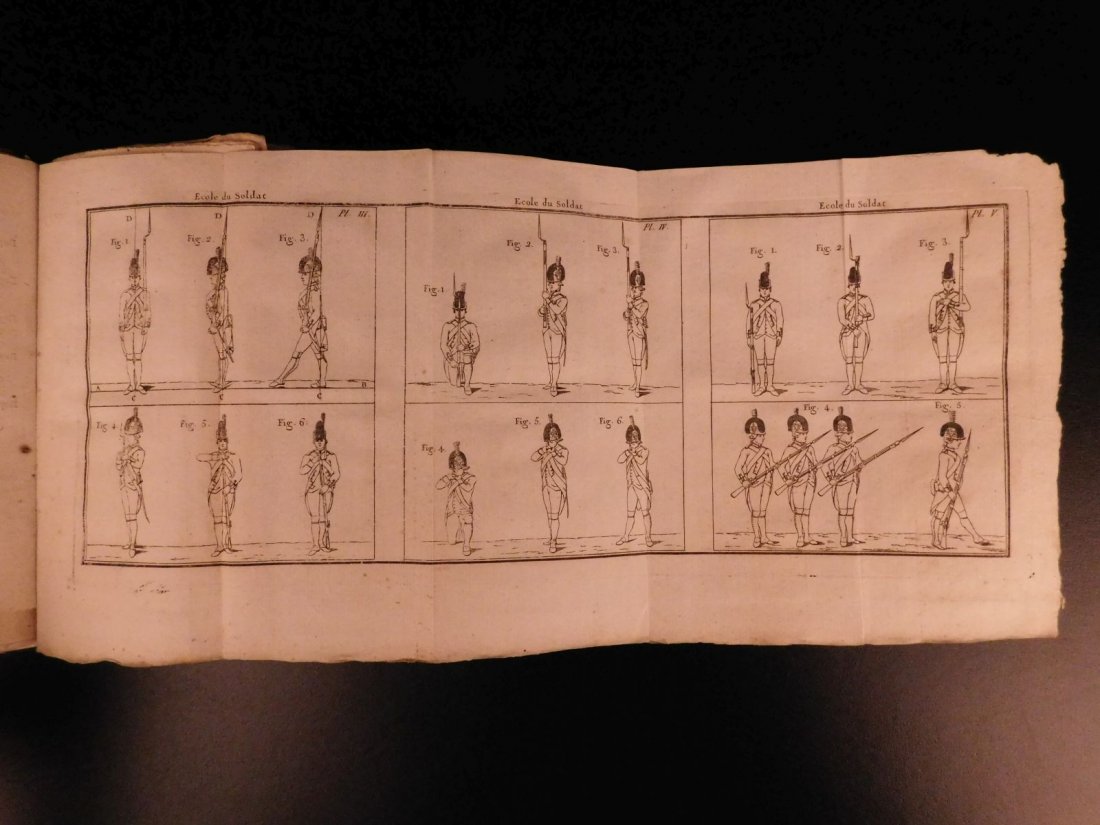 Ecole du Soldat
Pl. III.
D D D
Fig. 1 Fig. 2 Fig. 3.
A C C C B
Fig. 4. Fig. 5. Fig. 6.
Ecole du Soldat
Pl. IV.
Fig. 1 Fig. 2. Fig. 3.
Fig. 4. Fig. 5. Fig. 6.
Ecole du Soldat
Pl. V
Fig. 1. Fig. 2. Fig. 3.
Fig. 4. Fig. 5.